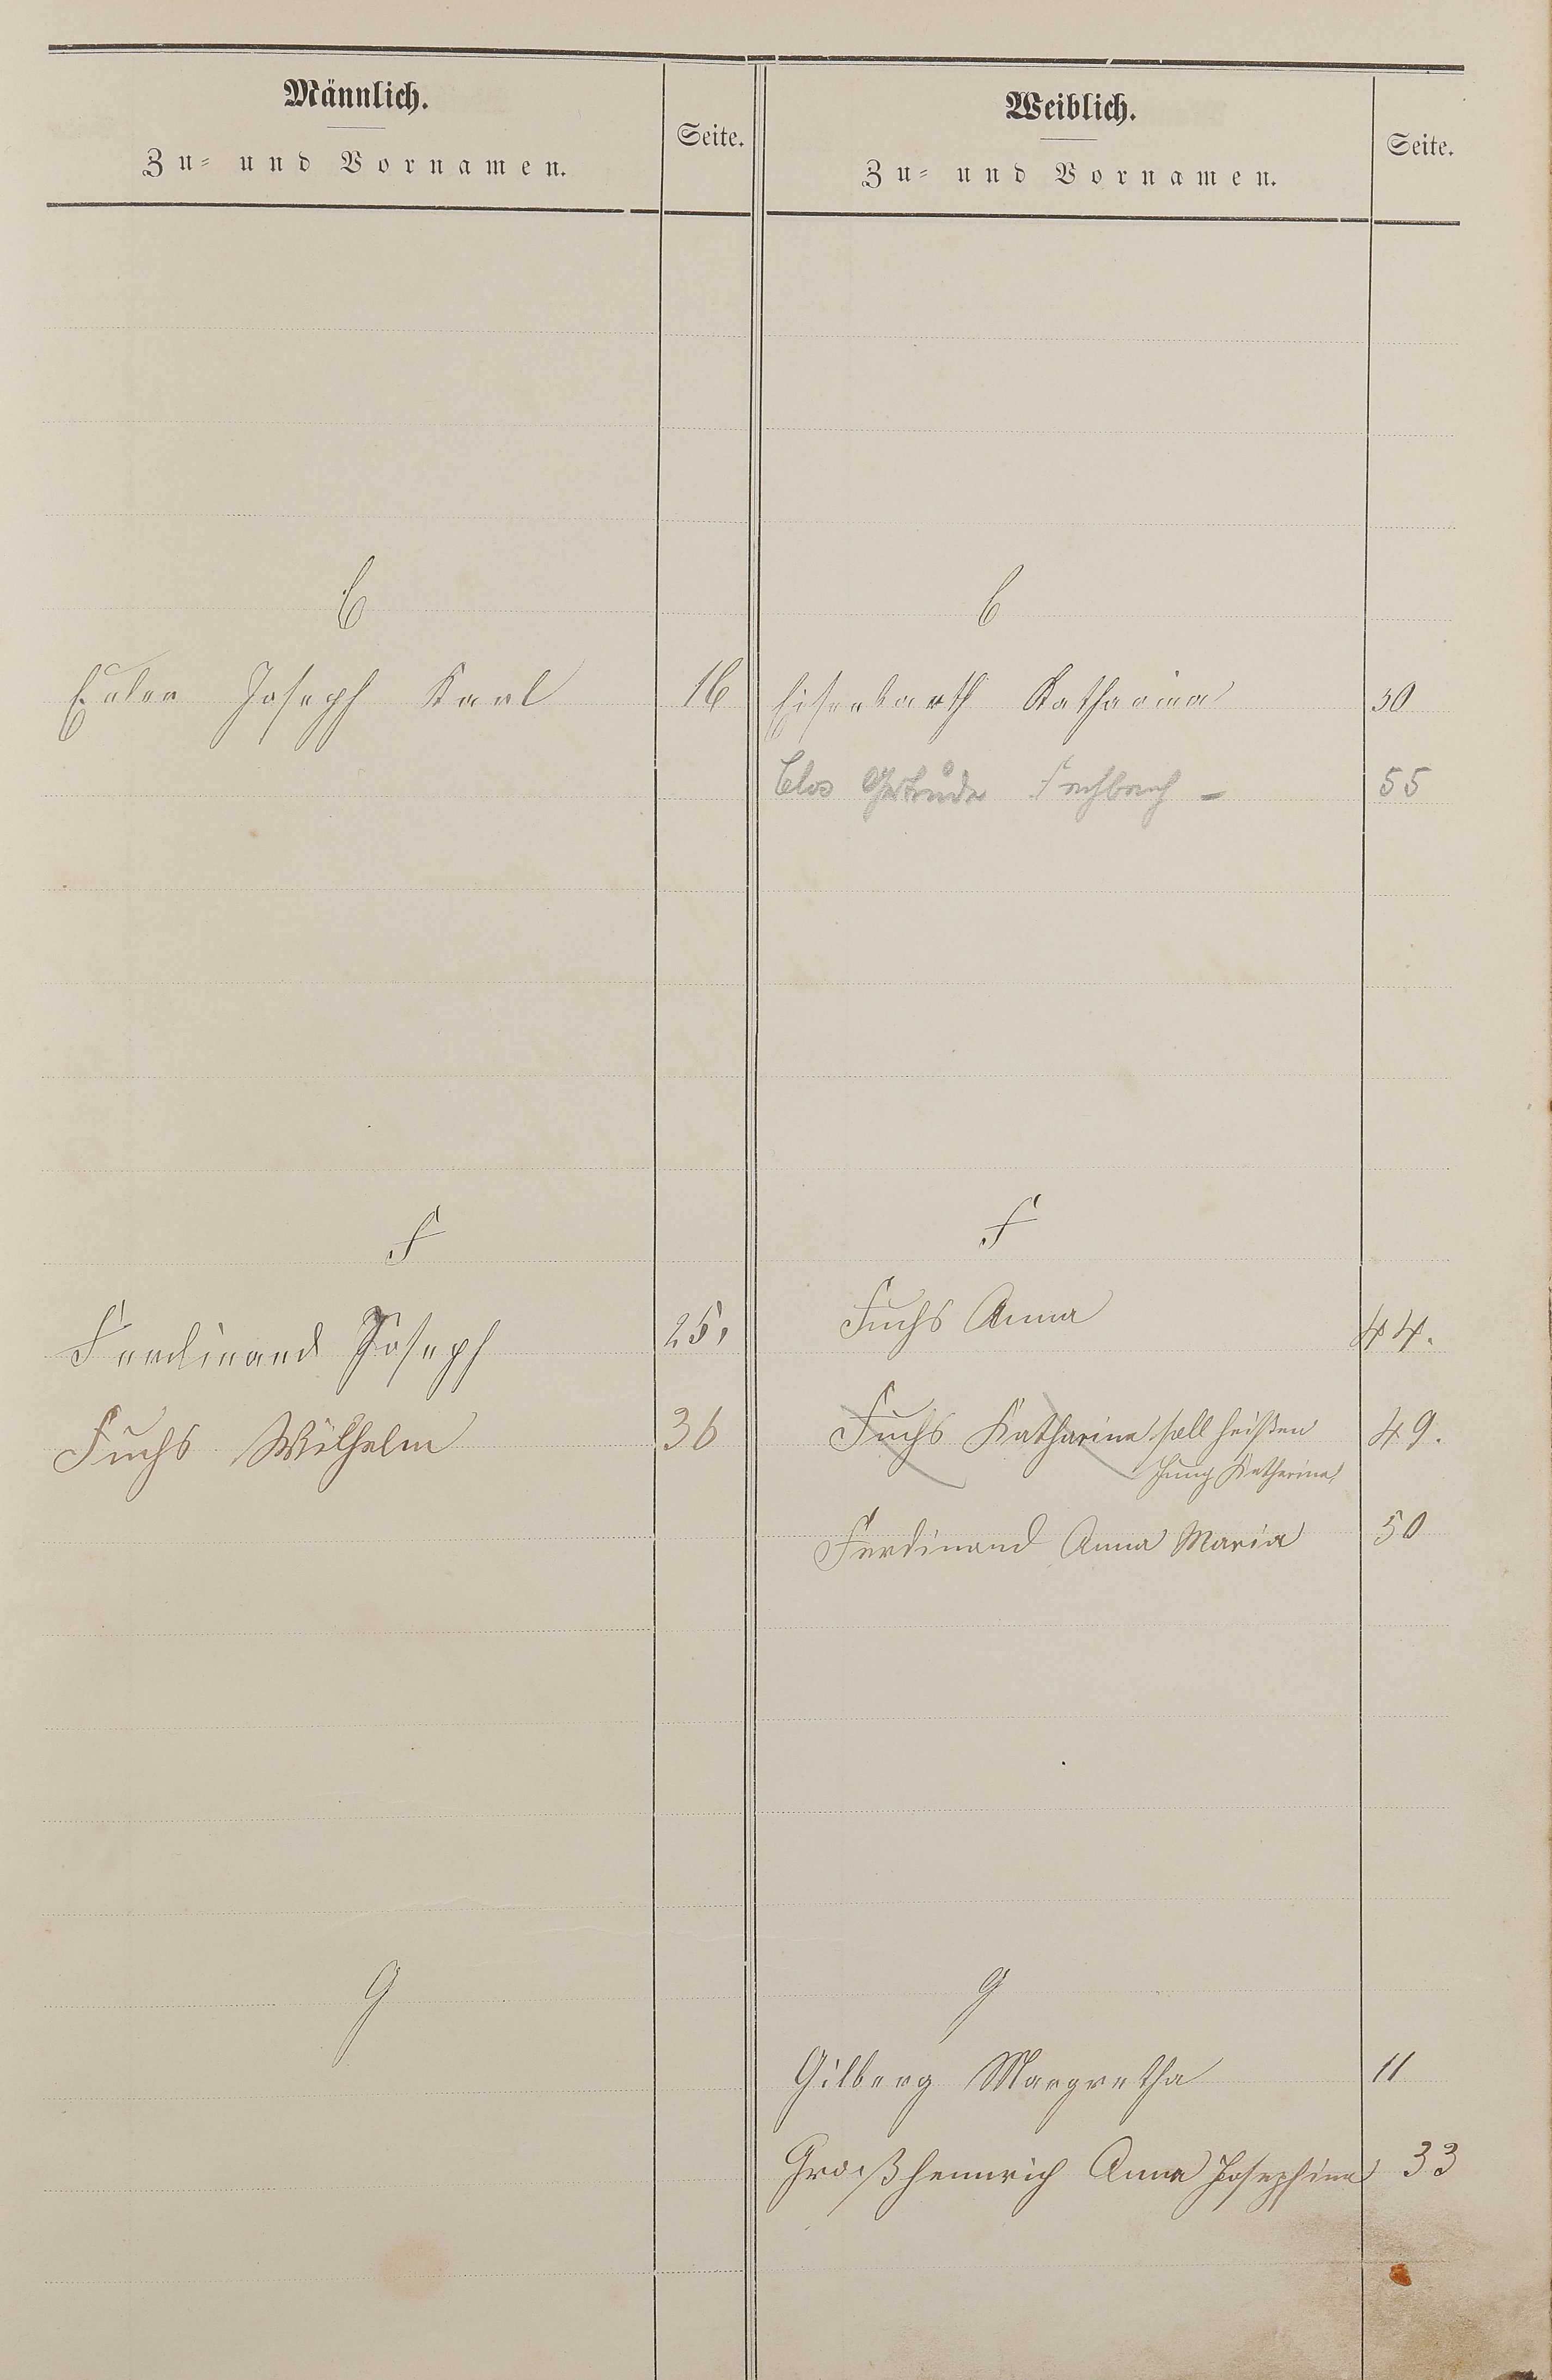 Männlich.
Zu- und Vornamen.
Seite.
Weiblich.
Zu- und Vornamen.
Seite.
E
E
Euler Joseph Karl 16
Eisenbarth Katharina 30
Clos Gertrude Fachbach - 55
F
F
Ferdinand Joseph 25.
Fuchs Anna 44.
Fuchs Wilhelm 36
Fuchs Katharina soll heißen 49.
Jung Katharina
Ferdinand Anna Maria 50
G
G
Gilberg Margretha 11
Großheinrich Anna Josephina 33